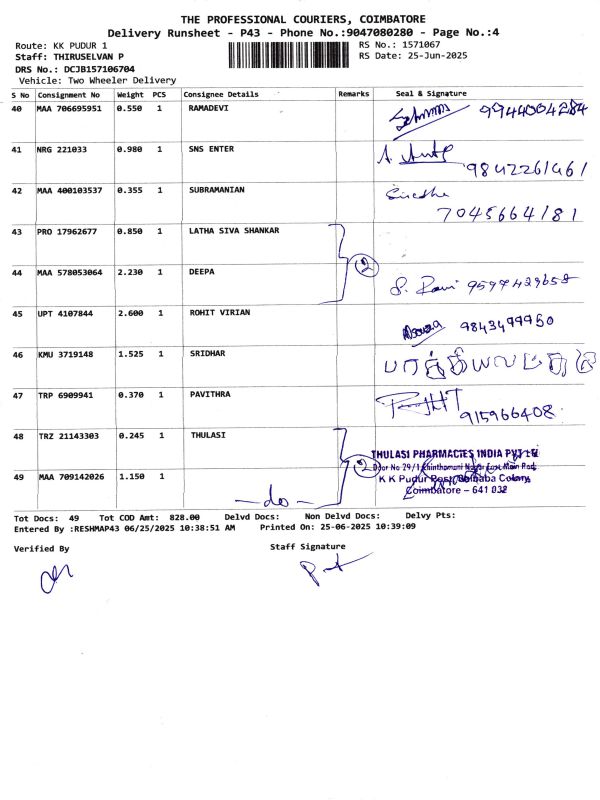 THE PROFESSIONAL COURIERS, COIMBATORE
Delivery Runsheet - P43 - Phone No.:9047080280 - Page No.:4
Route: KK PUDUR 1 RS No.: 1571067
Staff: THIRUSELVAN P RS Date: 25-Jun-2025
DRS No.: DCJB157106704
Vehicle: Two Wheeler Delivery
S No Consignment No Weight PCS Consignee Details Remarks Seal & Signature
40 MAA 706695951 0.550 1 RAMADEVI 9944004284
41 NRG 221033 0.980 1 SNS ENTER
9842261461
42 MAA 400103537 0.355 1 SUBRAMANIAN
7045664181
43 PRO 17962677 0.850 1 LATHA SIVA SHANKAR
2
44 MAA 578053064 2.230 1 DEEPA
S. Rani 9597429658
45 UPT 4107844 2.600 1 ROHIT VIRIAN
9843499950
46 KMU 3719148 1.525 1 SRIDHAR
47 TRP 6909941 0.370 1 PAVITHRA
915966408
48 TRZ 21143303 0.245 1 THULASI
THULASI PHARMACIES INDIA PVT Ltd
2 Door No 29/1 Chinthamani Nagar East Main Road
49 MAA 709142026 1.150 1 K K Pudur Post, Saibaba Colony
Coimbatore - 641 032
-do-
Tot Docs: 49 Tot COD Amt: 828.00 Delvd Docs: Non Delvd Docs: Delvy Pts:
Entered By :RESHMAP43 06/25/2025 10:38:51 AM Printed On: 25-06-2025 10:39:09
Verified By Staff Signature